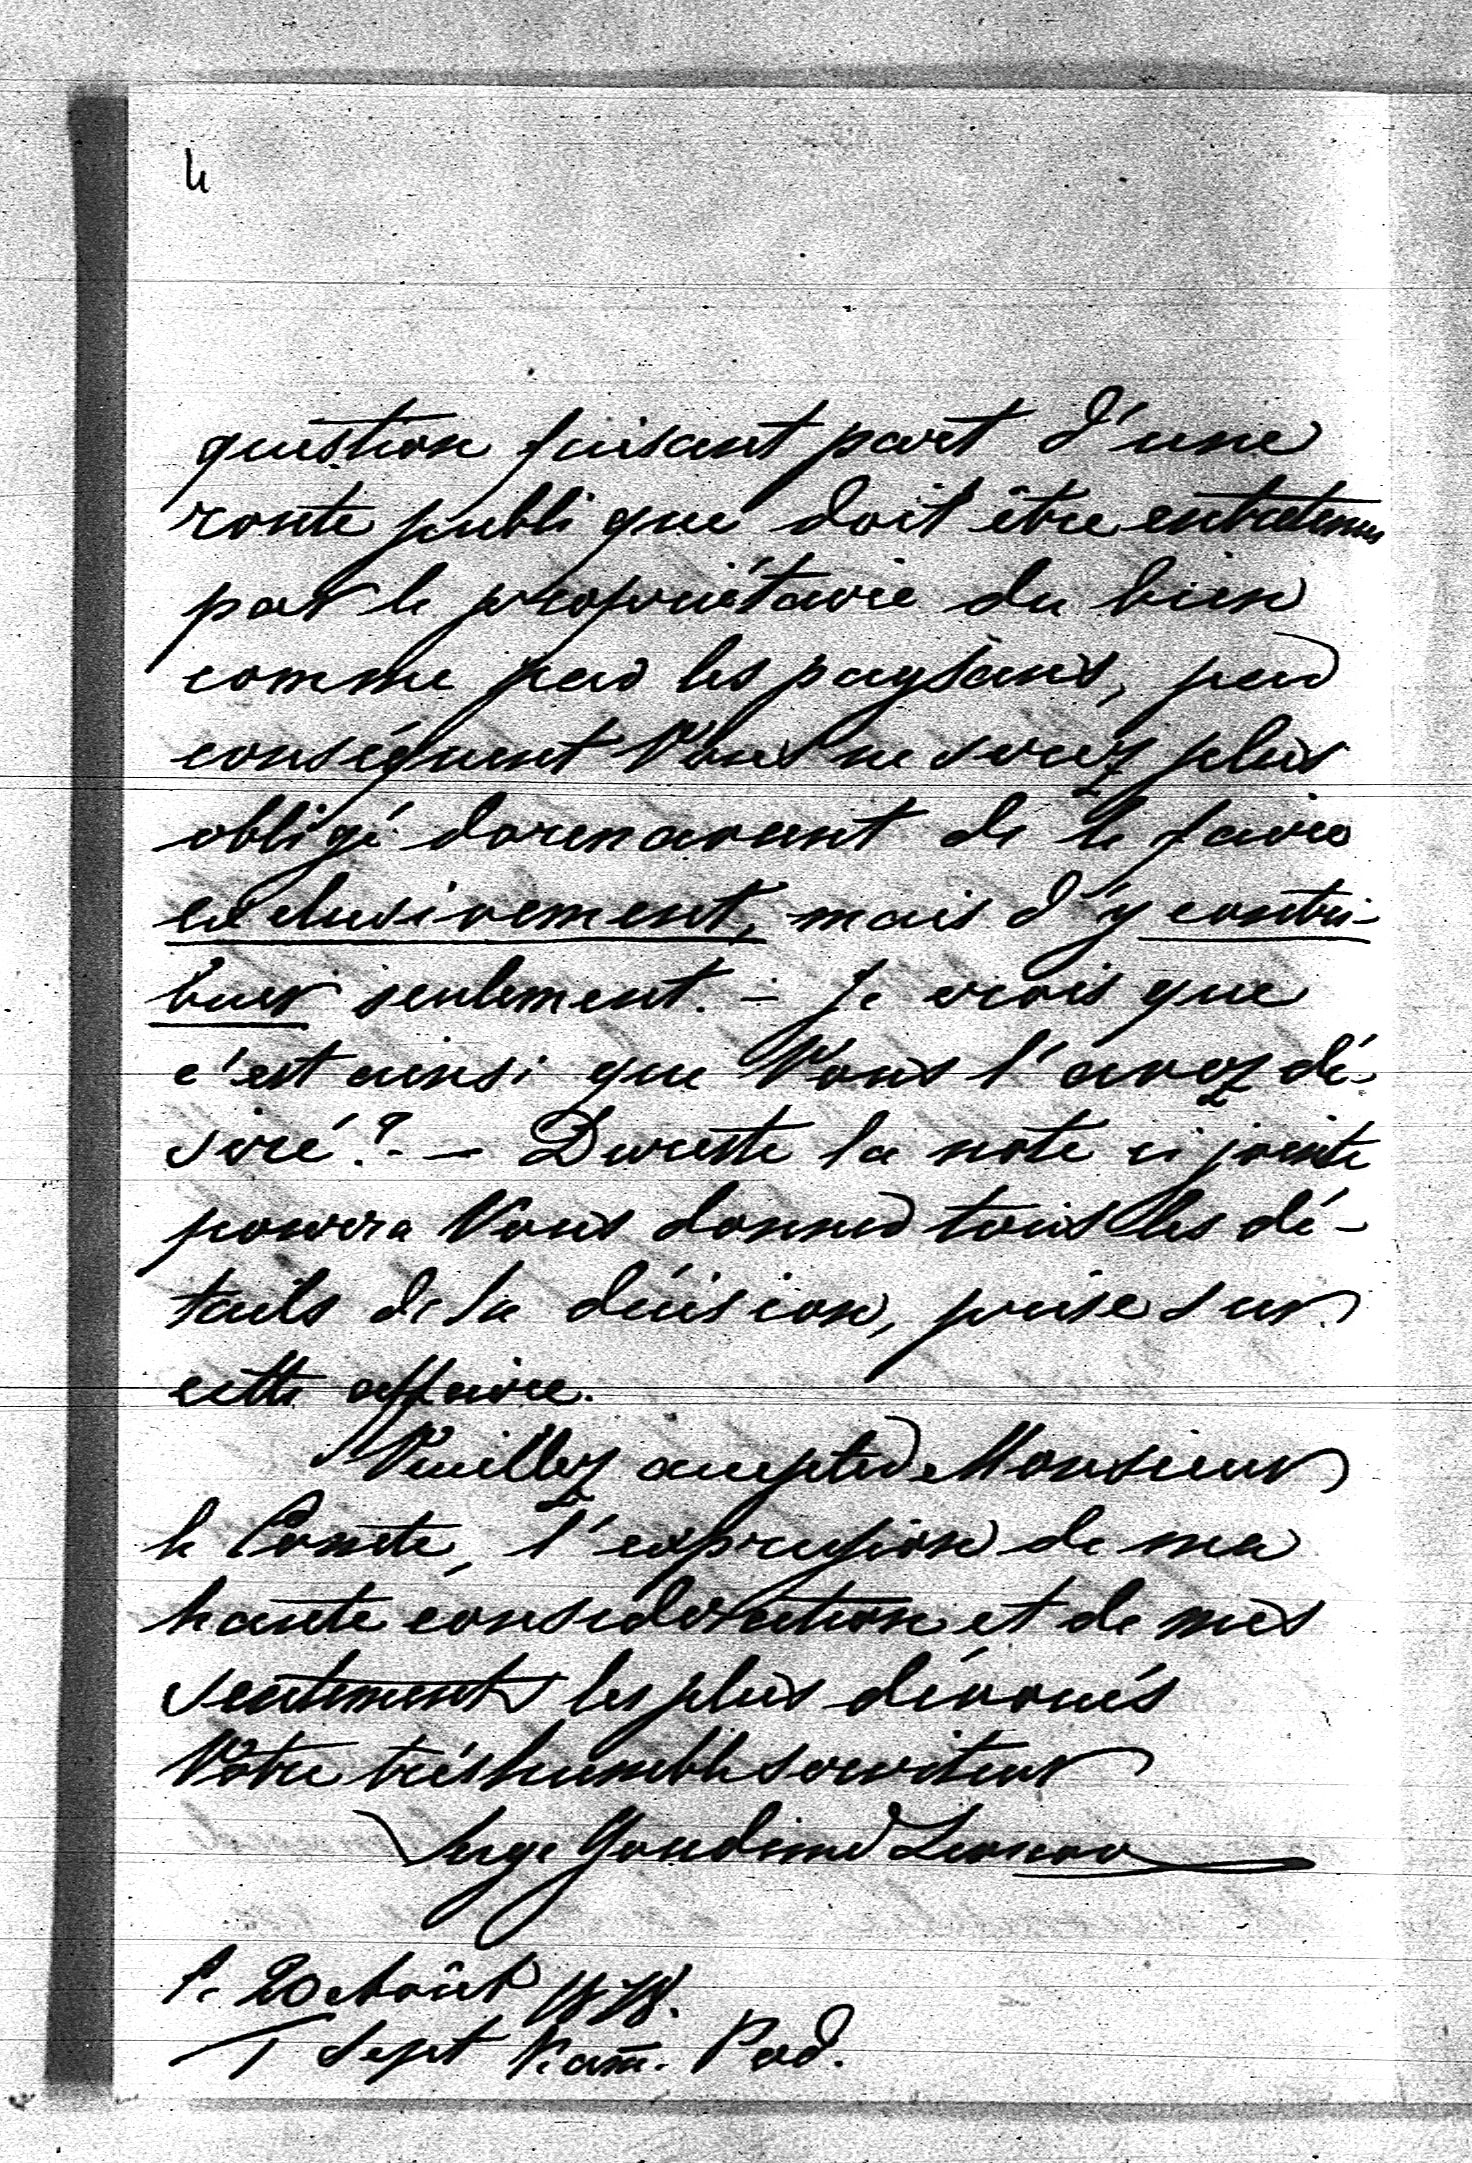 4
question faisant part d'une
route publique doit être entretenue
par le propriétaire du bien
comme par les paysans, par
conséquent Vous ne serez plus
obligé dorenavant de le faire
exclusivement, mais d'y contri-
buer seulement. – Je crois que
c'est ainsi que Vous l'avez dé-
siré? – Dureste la note ci jointe
pourra Vous donner tous les dé-
tails de la décision, prise sur
cette affaire.
Veuillez accepter Monsieur
le Comte, l'expression de ma
haute considération et de mes
sentiments les plus dévoués
Votre très humble serviteur
Serge Goudime Levkov
le 20 Août 1878.
1 Sept Kam. Pod.